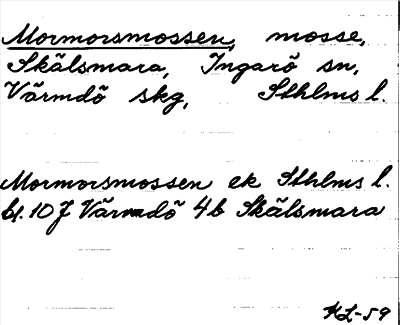 Mormorsmossen, mosse,
Skälsmara, Ingarö sn,
Värmdö skg, Sthlms l.
Mormorsmossen ek Sthlms l.
bl. 10 J Värmdö 4b Skälsmara
KL-59